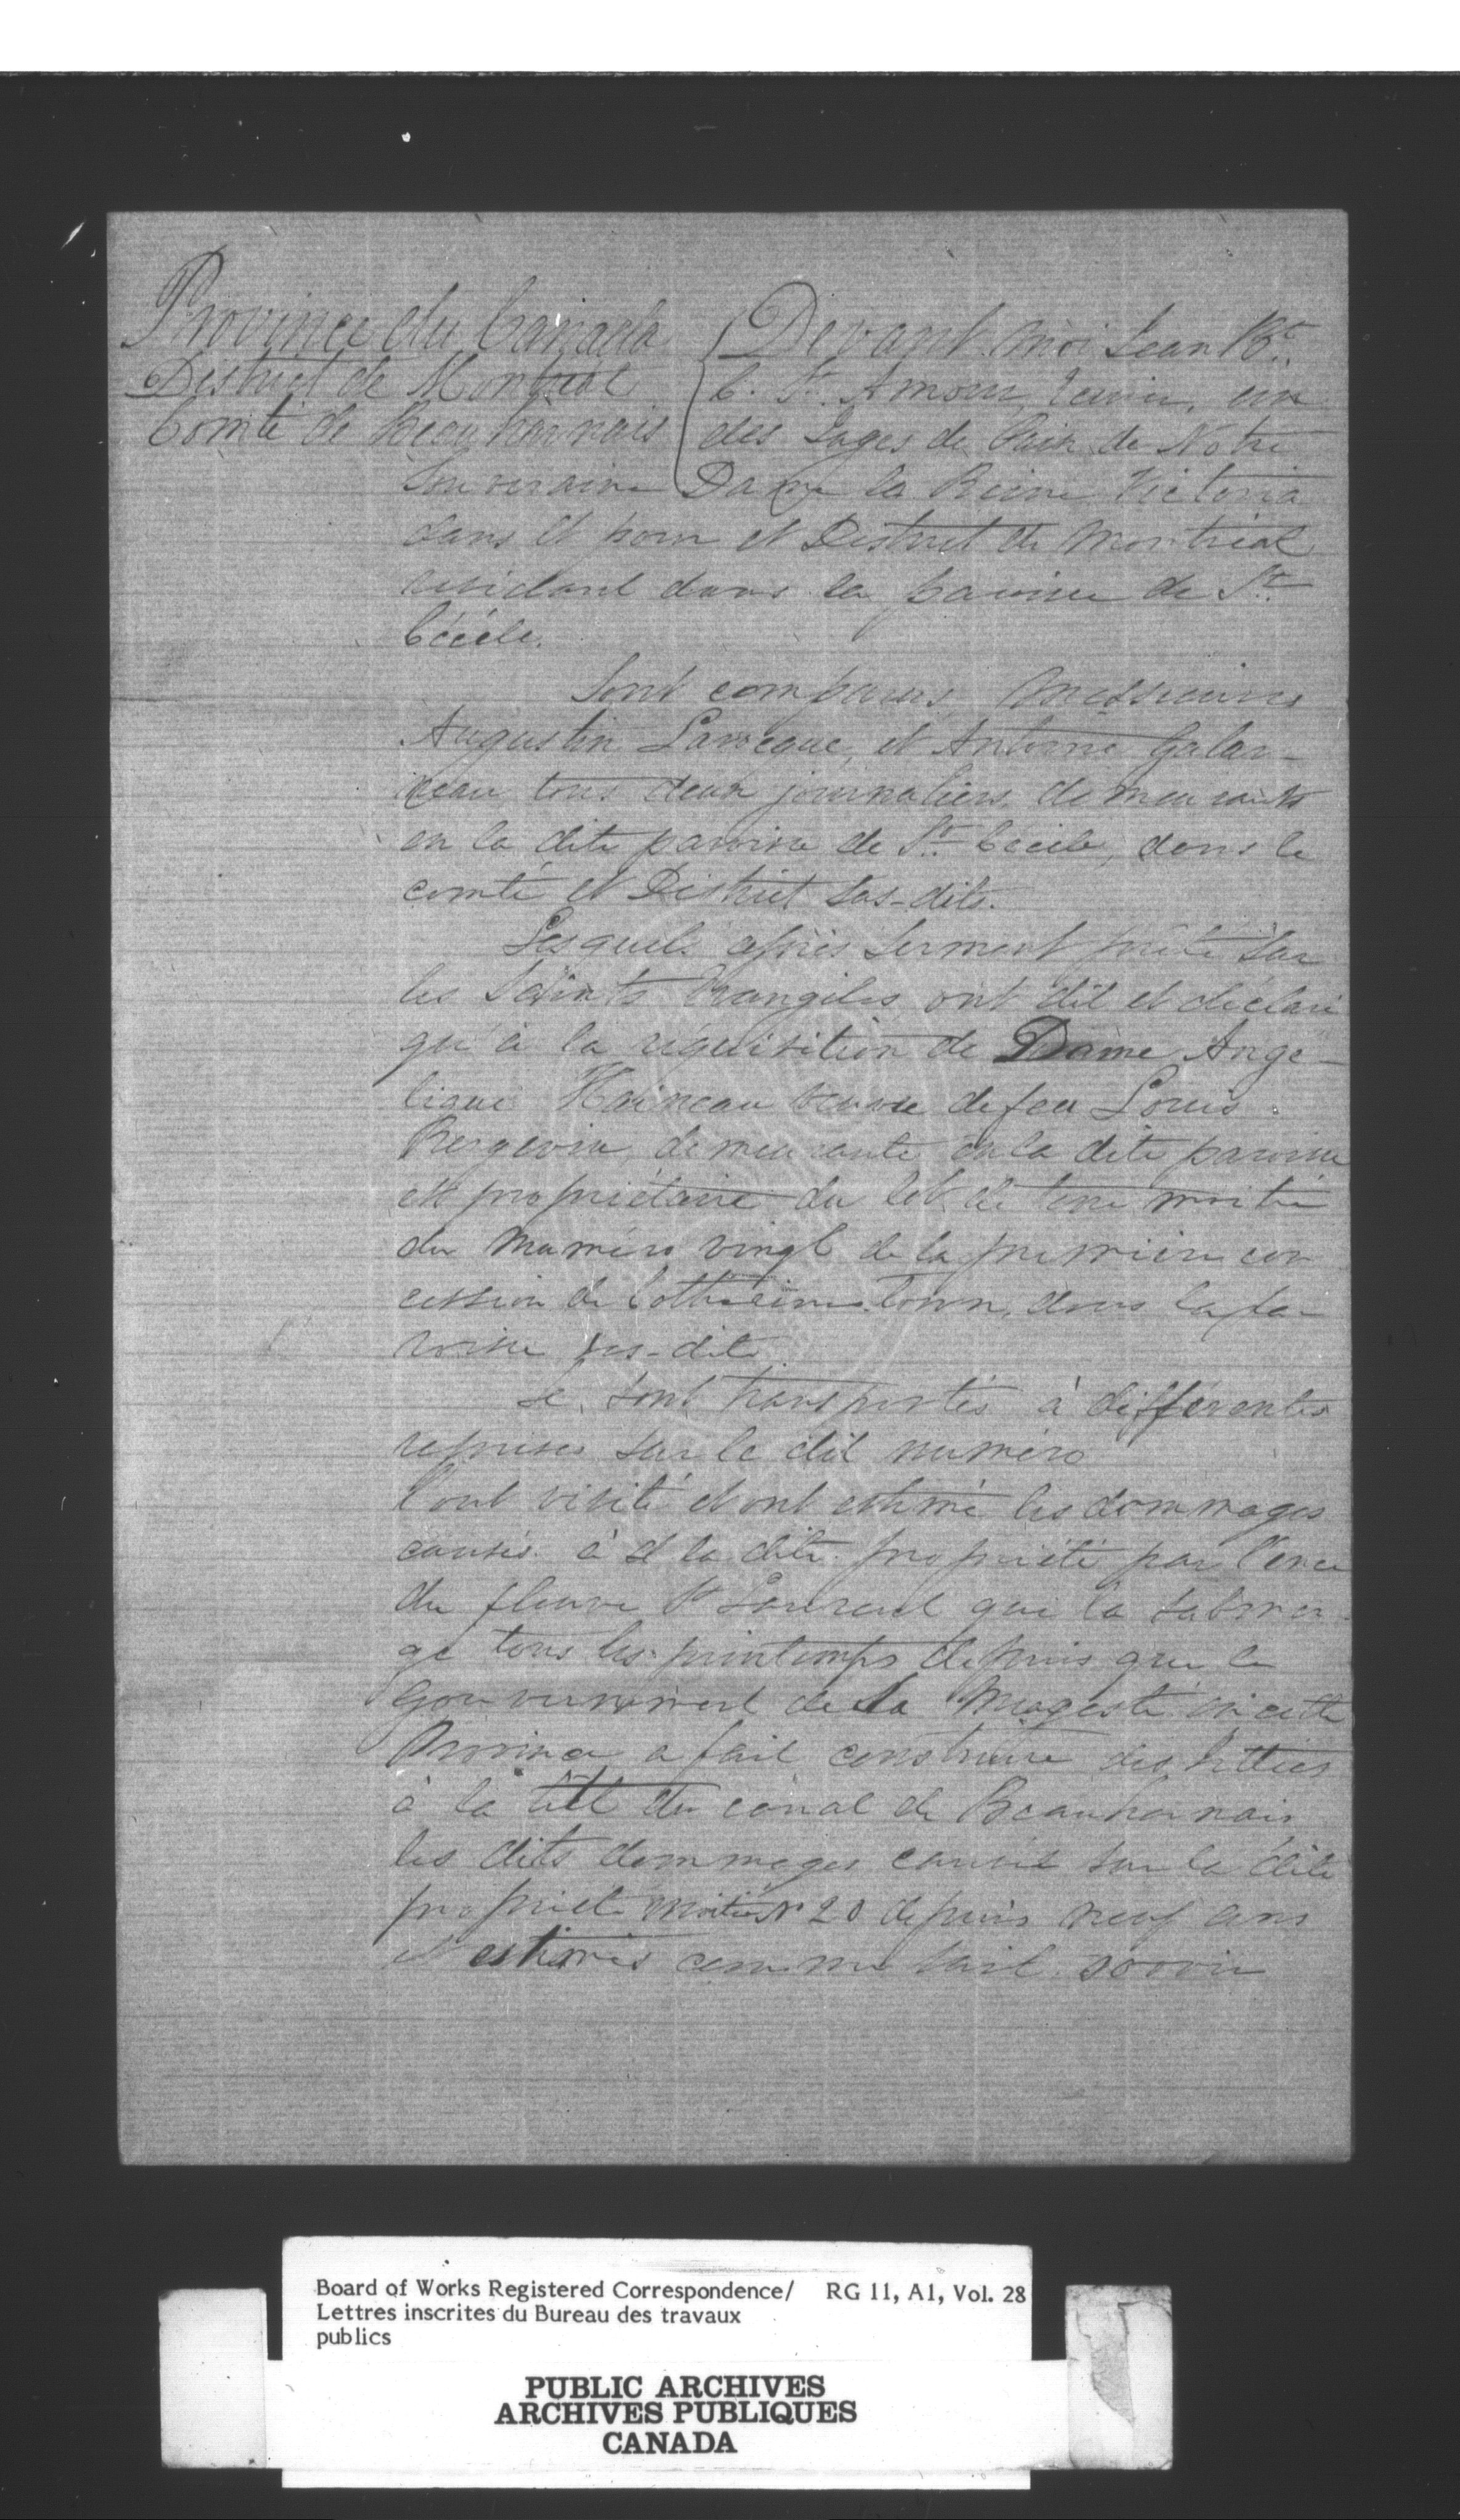 Province du Canada
District de Montreal
Comté de Beauharnais
Devant moi Jean Bte.
C. St. Amour, Ecuier, un
des Juges de Paix de Notre
Souveraine Dame la Reine Victoria
dans et pour et District de Montréal
residant dans la paroisse de St.
Cécile.
Sont comparus Messieurs
Augustin Laroque, et Antoine Galar-
neau tous deux journaliers demeurants
en la dite paroisse de St. Cecile, dans le
comté et District sus-dits.
Lesquels après serment prêté sur
les Saints Evangiles ont dit et déclaré
qu'à la réquisition de Dame Ange-
lique Haineau veuve de feu Louis
Bergevin demeurante en la dite paroisse
et propriétaire du lot de terre moitié
du Numéro vingt de la premiere con
cession de Catherinestown, dans la pa-
roisse sus-dite
Se sont transportés à différentes
reprises sur le dit numéro
l'ont visité et ont estimé les dommages
causés à la dite propriété par l'eau
du fleuve St Laurent qui la submer-
ge tous les printemps depuis que le
Gouvernement de Sa Magesté en cette
Province a fait construire des
à la tête du canal de Beauharnais
les dits dommages causés sur la dite
propriété moitié No 20 depuis neuf ans
et estimés comme suit savoir
Board of Works Registered Correspondence/ RG 11, A1, Vol. 28
Lettres inscrites du Bureau des travaux
publics
PUBLIC ARCHIVES
ARCHIVES PUBLIQUES
CANADA